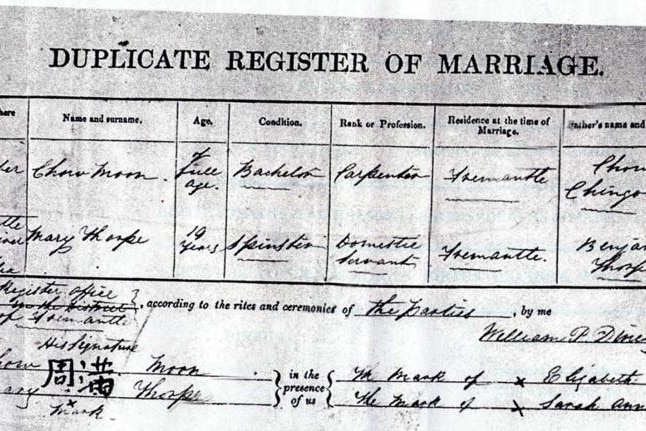 DUPLICATE REGISTER OF MARRIAGE.
Name and surname. Age. Condition. Rank or Profession. Residence at the time of Marriage. Father's name and
Chow Moon. of Full age. Bachelor Carpenter Fremantle Chow Chingo
Mary Thorpe 19 Years Spinster Domestic Servant Fremantle. Benja Thorp
Register office
in the District
of Fremantle
, according to the rites and ceremonies of the Parties, by me
William P. Dime
His signature
how 周 Moon
Thorpe
x
mark
in the presence of us
The mark of x Elizabeth
The mark of x Sarah Ann